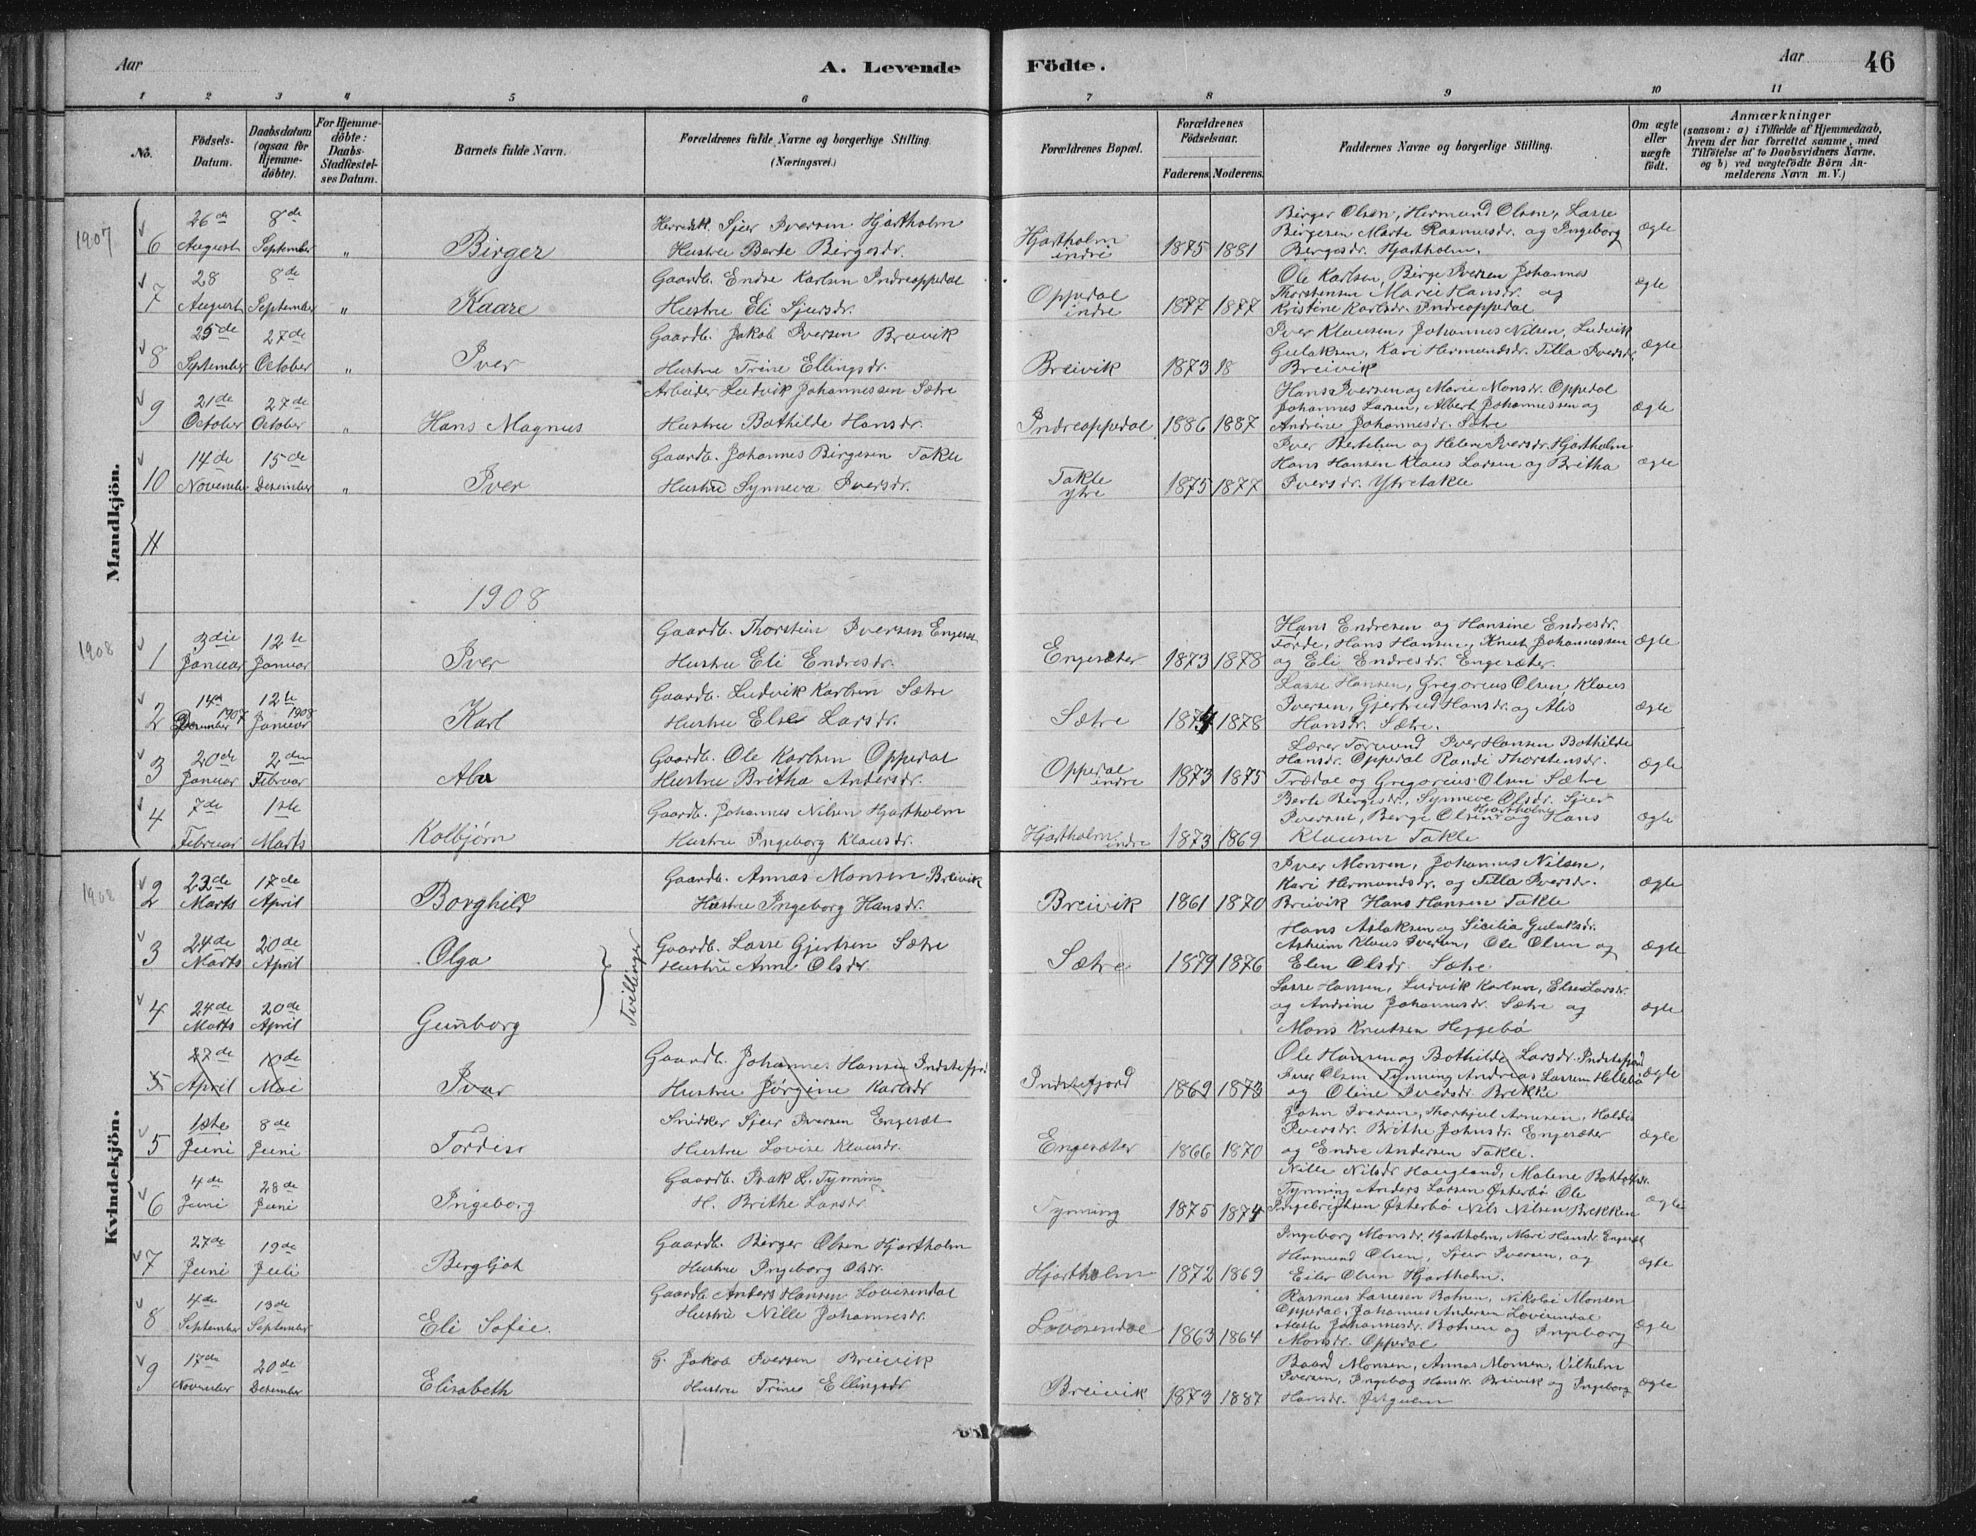 Aar
A. Levende
Födte.
Aar
46
1 2 3 4 5 6 7 8 9 10 11
No.
Födsels-Datum.
Daabsdatum (ogsaa for Hjemme-döbte).
For Hjemme-döbte: Daabs-Stadfæstel-ses Datum.
Barnets fulde Navn.
Forældrenes fulde Navne og borgerlige Stilling. (Næringsvei.)
Forældrenes Bopæl.
Forældrenes Födselsaar.
Faderens. Moderens.
Faddernes Navne og borgerlige Stilling.
Om ægte eller uægte födt.
Anmærkninger
(saasom: a) i Tilfælde af Hjemmedaab, hvem der har forrettet samme, med Tilföielse af to Daabsvidners Navne, og b) ved uægtefödte Börn An-melderens Navn m. V.)
Mandkjön.
1907
6 26de August 8de September " Birger
Sjur Iversen Hjartholm
Hustru Berte Birgesdr.
Hjartholm indre 1875 1881
Birger Olsen, Hermund Olsen, Lasse
Birgesen Marte Rasmusdr. og Ingeborg
Bergesdr. Hjartholm. ægte
7 28 August 8de September " Kaare
Gaardb. Endre Karlsen Indreoppedal
Hustru Eli Sjursdr.
Oppedal indre 1877 1877
Ole Karlsen, Birge Iversen Johannes
Thorstensen Marie Hansdr. og
Kristine Karlsdr. Indreoppedal ægte
8 25de September 27de October " Iver
Gaardb. Jakob Iversen Breivik
Hustru Trine Ellingsdr.
Breivik 1873 18
Iver Klausen, Johannes Nilsen, Ludvik
Gulaksen, Kari Hermundsdr. Tilla Iversdr.
Breivik ægte
9 21de October 27de October " Hans Magnus
Arbeider Ludvik Johannessen Sætre
Hustru Bothilde Hansdr.
Indreoppedal 1886 1887
Hans Iversen og Marie Monsdr. Oppedal
Johannes Larsen, Albert Johannessen og
Andrine Johannesdr. Sætre ægte
10 14de November 15de Desember " Iver
Gaardb. Johannes Birgesen Takle
Hustru Synneva Iversdr.
Takle ytre 1875 1877
Iver Bertelsen og Helene Iversdr. Hjartholm
Hans Hansen Klaus Larsen og Britha
Iversdr. Ytretakle ægte
11
1908
1908
1 3die Januar 12te Januar Iver
Gaardb. Thorstein Iversen Engesæt
Hustru Eli Endresdr.
Engesæter 1873 1878
Hans Endresen og Hansine Endresdr.
Førde, Hans Hansen, Knut Johannessen
og Eli Endresdr. Engesæter. ægte
2 14de December 1907 12te Januar 1908 Karl
Gaardb. Ludvik Karlsen Sætre
Hustru Else Larsdr.
Sætre 1874 1878
Lasse Hansen, Gregorius Olsen, Klaus
Iversen, Gjertrud Hansdr. og Alis
Hansdr. Sætre. ægte
3 20de Januar 2den Februar Alv
Gaardb. Ole Karlsen Oppedal
Hustru Britha Andersdr.
Oppedal indre 1873 1875
Lærer Torvund Iver Hansen Bothilde
Hansdr. Oppedal Randi Thorstensdr.
Trædal og Gregorius Olsen Sætre ægte
4 7de Februar 1ste Marts Kolbjørn
Gaardb. Johannes Nilsen Hjartholm
Hustru Ingeborg Klausdr.
Hjartholm indre 1873 1869
Berte Birgesdr., Synneve Olsdr. Sjur
Iversen, Berge Olsen Hjartholm og Hans
Klausen Takle ægte
Kvindekjön.
1908
2 23de Marts 17de April Borghild
Gaardb. Annas Monsen Breivik
Hustru Ingeborg Hansdr.
Breivik 1861 1870
Iver Monsen, Johannes Nilsen,
Kari Hermundsdr. og Tilla Iversdr.
Breivik Hans Hansen Takle ægte
3 24de Marts 20de April Olga
Gaardb. Lasse Gjertsen Sætre
Hustru Anne Olsdr.
Tvillinger
Sætre 1879 1876
Hans Aslaksen og Sicilia Gulaksdr.
Asheim Klaus Iversen, Ole Olsen og
Elen Olsdr. Sætre ægte
4 24de Marts 20de April Gunborg
Lasse Hansen, Ludvik Karlsen, Else Larsdr.
og Andrine Johannesdr. Sætre og
Mons Knutsen Heggebø ægte
5 27de April 10de Mai Ivar
Gaardb. Johannes Hansen Indstefjord
Hustru Jørgine Karlsdr
Indstefjord 1869 1873
Ole Hansen og Bothilde Larsdr. Indstefjord
Iver Olsen Tynning Andreas Lassen Hellebø
og Oline Iversdr. Brekke ægte
5 1ste Juni 8de Juni Tordis
Snidker Sjur Iversen Engesæt
Hustru Lovise Klausdr.
Engesæter 1866 1870
John Iversen, Thorkjel Arnesen, Holdis
Iversdr. Brithe Johnsdr. Engesæter
og Endre Andersen Takle. ægte
6 4de Juni 28de Juni Ingeborg
Gaardb. Isak L. Tynning
H. Brithe Larsdr.
Tynning 1875 1874
Nille Nilsdr Haugland, Malene
Tynning Anders Larsen Østerbø Ole
Ingebrigtsen Østerbø Nils Nilsen Brekken ægte
7 27de Juni 19de Juli Bergljot
Gaardb. Birger Olsen Hjartholm
Hustru Ingeborg Olsdr.
Hjartholm 1872 1869
Ingeborg Monsdr. Hjartholm, Mari Hansdr. Engesæt
Hermund Olsen, Sjur Iversen, og
Eiler Olsen Hjartholm. ægte
8 4de September 13de September Eli Sofie.
Gaardb Anders Hansen Lovisendal
Hustru Nille Johannesdr.
Lovisendal 1863 1864
Rasmus Larsesen Botnen, Nikolai Monsen
Oppedal, Johannes Andersen Lovisendal
Johannesdr. Botnen og Ingeborg
Monsdr. Oppedal ægte
9 17de November 20de Desember Elisabeth
G. Jakob Iversen Breivik
Hustru Trine Ellingsdr
Breivik 1873 1887
Baard Monsen, Annas Monsen, Vilhelm
Iversen, Ingeborg Hansdr. Breivik og Ingeborg
Hansdr. ægte